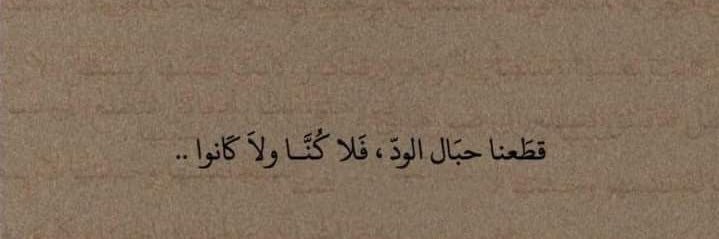 قطَعنا حبَال الودّ ، فَلا كُنَّــا ولاَ كَانوا ..